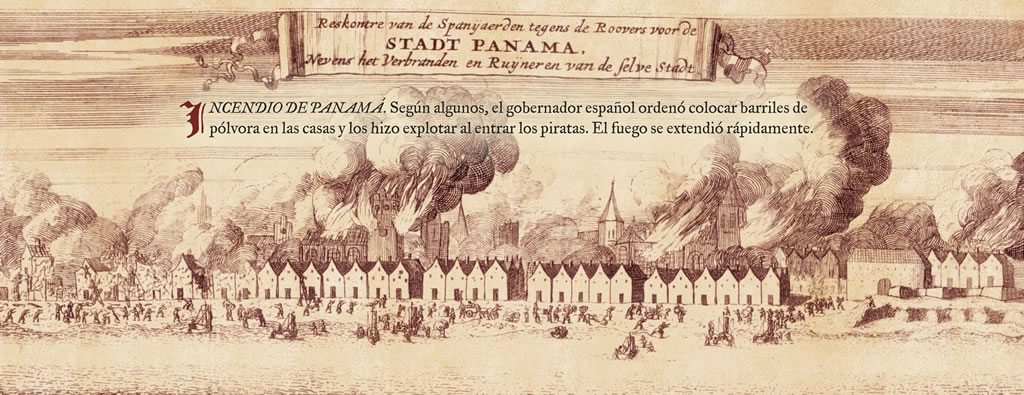 Reskontre van de Spanyaerden tegens de Roovers voor de
STADT PANAMA,
Nevens het Verbranden en Ruyneren van de selve Stadt
INCENDIO DE PANAMÁ. Según algunos, el gobernador español ordenó colocar barriles de
pólvora en las casas y los hizo explotar al entrar los piratas. El fuego se extendió rápidamente.